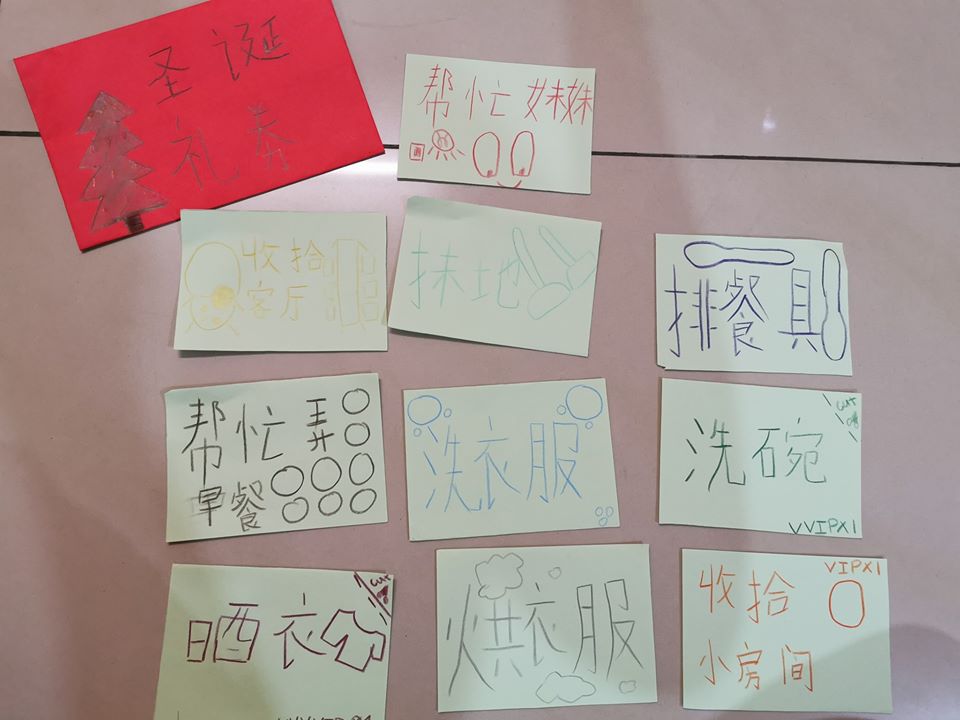 圣诞
礼券
帮忙妹妹
收拾
客厅
抹地
排餐具
帮忙弄
早餐
洗衣服
cut
洗碗
VVIPX1
cut
晒衣
烘衣服
VIPX1
收拾
小房间